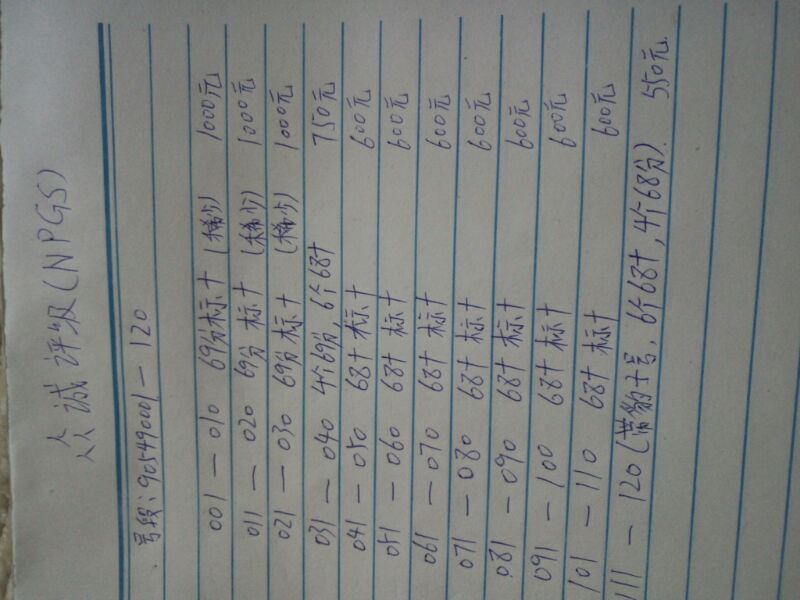 众诚评级(NPGS)
号段:90549001—120
001—010 69分标十 (稀少) 1000元
011—020 69分标十 (稀少) 1000元
021—030 69分标十 (稀少) 1000元
031—040 4个69分, 6个68十 750元
041—050 68十标十 600元
051—060 68十标十 600元
061—070 68十标十 600元
071—080 68十标十 600元
081—090 68十标十 600元
091—100 68十标十 600元
101—110 68十标十 600元
111—120(带豹子号, 6个68十, 4个68分). 550元.